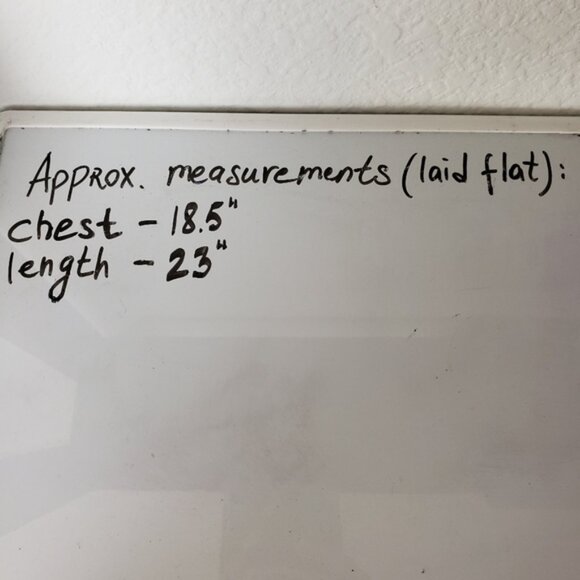 Approx. measurements (laid flat):
chest - 18.5"
length - 23"